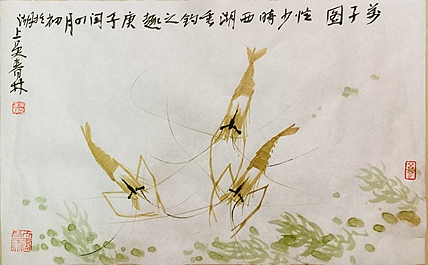 子图 少時西湖垂钓之趣庚子闰四月初於
湖上吴青林